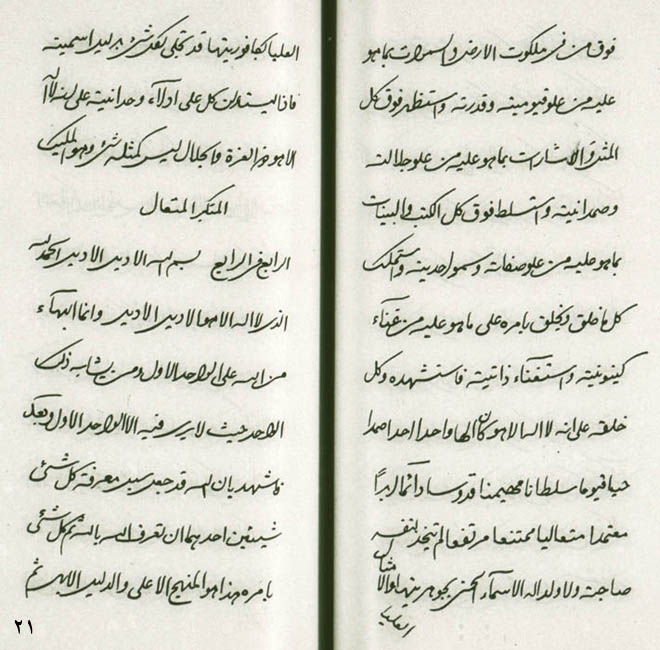 فوق من في ملكوت الارض والسموات بما هو
عليه من علو قيوميته وقدرته واستظهر فوق كل
المثل والاشارات بما هو عليه من علو جلالته
وصمدانيته واستسلط فوق كل الكتب والبينات
بما هو عليه من علو صفاته وسمو احديته واستملك
كل ما خلق ويخلق بامره على ما هو عليه من غناء
كينونيته واستغناء ذاتيته فاستشهده وكل
خلقه على انه لا اله الا هو كان الها واحدا احدا صمدا
حيا قيوما سلطانا مهيمنا قدوسا دائما ابدا
معتمدا متعاليا ممتنعا مرتفعا لم يتخذ لنفسه
صاحبة ولا ولدا له الاسماء الحسنى بجوهريتها والامثال
العليا
العليا بكافوريتها قد تجلى لكل شئ
ليستدلن كل على ادلاء وحدانيته على انه لا اله
الا هو ذو العزة والجلال ليس كمثله شئ وهو المليك
المتكبر المتعال
الرابع في الرابع بسم الله الادين الادين الحمد لله
الذي لا اله الا هو الادين الادين وانما البهاء
من الله على الواحد الاول ومن يشابه ذلك
الواحد حيث لا يرى فيه الا الواحد الاول وبعد
فاشهد بان الله قد جعل سبيل معرفة كل شئ
شيئين احدهما ان تعرف الله بالله ثم كل شئ
بامره هذا هو المنهج الاعلى والدليل الابهى ثم
٢١